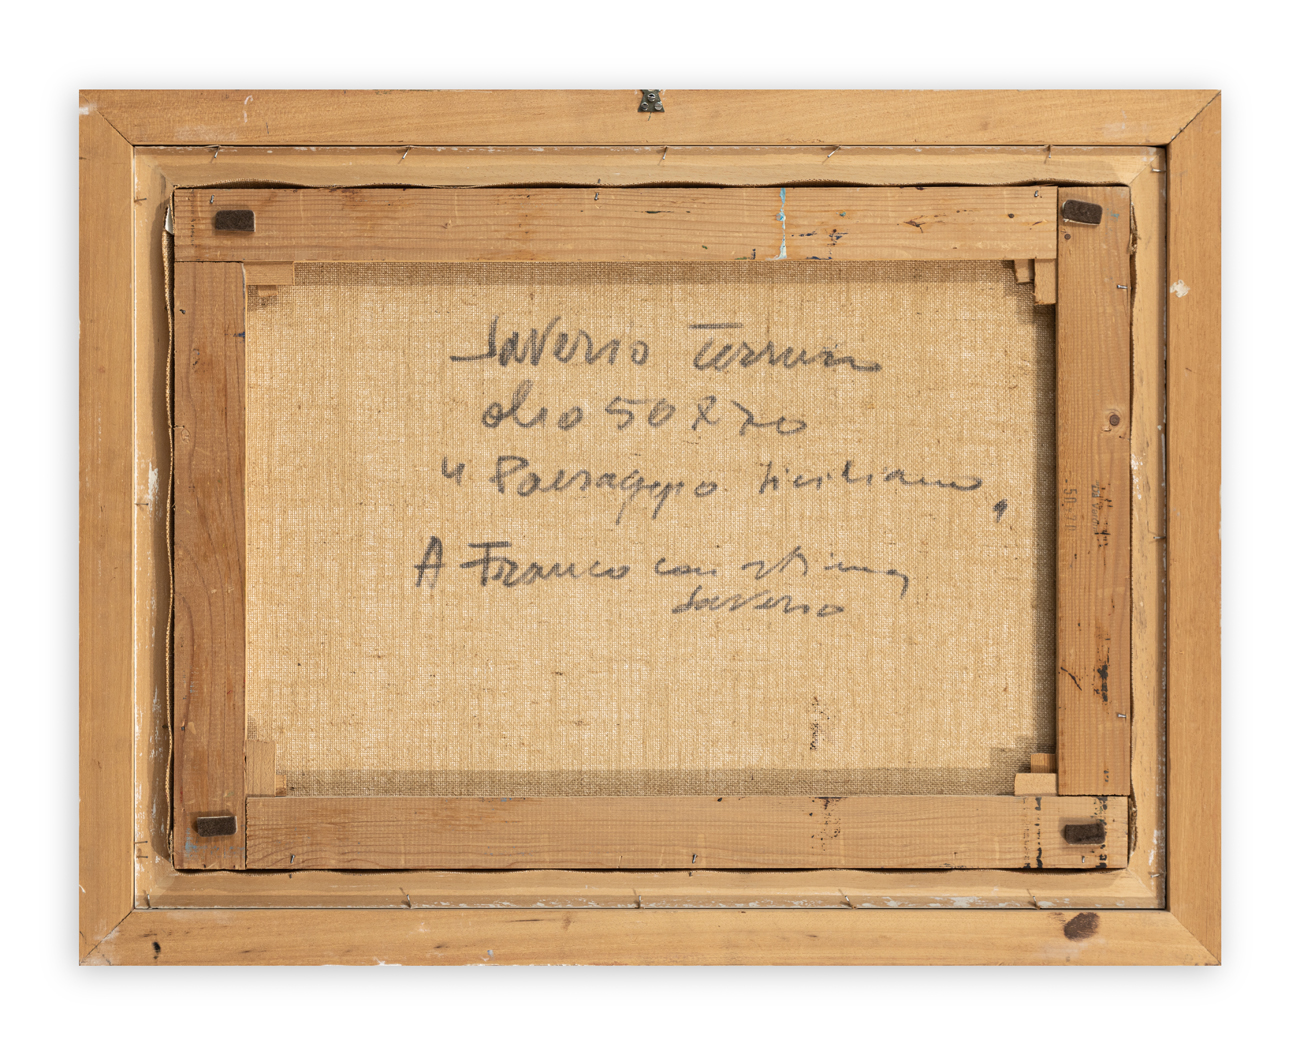 Saverio Terruso
olio 50 X 70
"Paesaggio siciliano"
A Franco con stima
Saverio
50 70